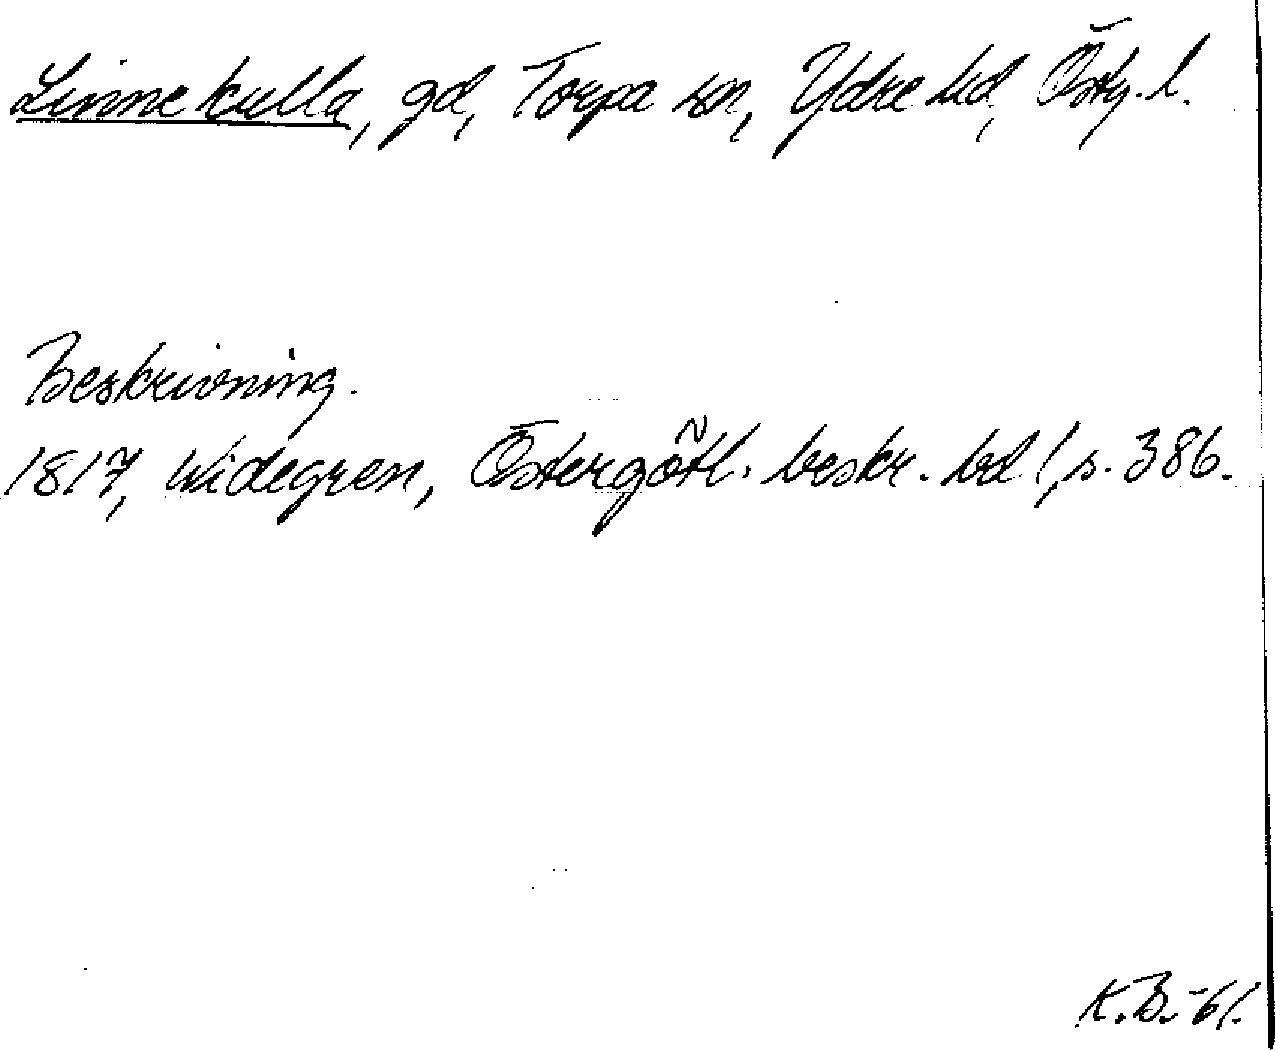 Linnekulla, gd, Torpa sn, Ydre hd, Östg. l.
Beskrivning.
1817, Widegren, Östergötl. beskr. bd 1, s. 386.
K.B. -61.